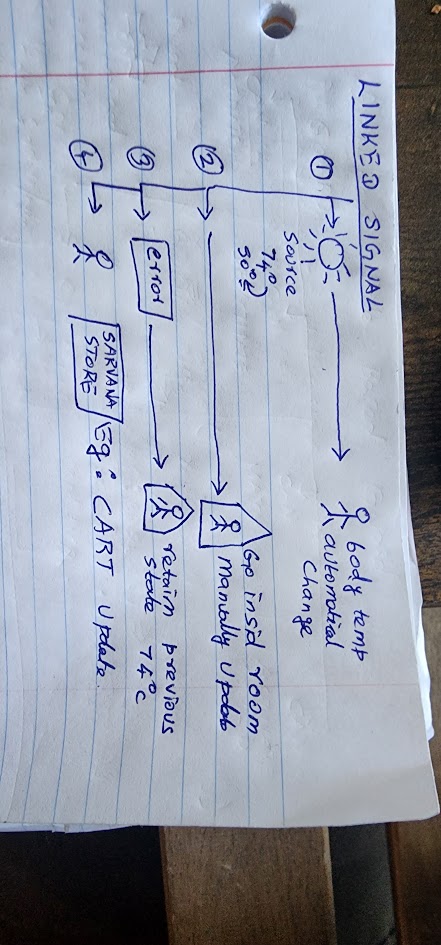 LINKED SIGNAL
①
Source
74°
90°
body temp
automatical
change
②
Go insid room
Manually Update
③
error
retain previous
state 74°C
④
SARVANA
STORE
Eg: CART Update.